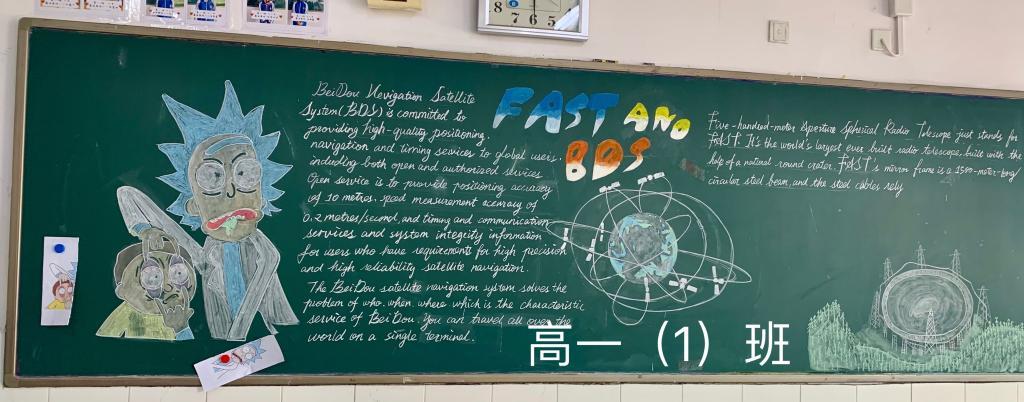 BeiDou Nevigation Satellite
System(BDS) is committed to
providing high-quality positioning,
navigation and timing services to global users,
including both open and authorized services.
Open service is to provide positioning accuracy
of 10 metres, speed measurement accuracy of
0.2 metres/second, and timing and communication
services and system integrity information
for users who have requirements for high precision
and high reliability satellite navigation.
The BeiDou satellite navigation system solves the
problem of who, when, where which is the characteristic
service of BeiDou. You can travel all over the
world on a single terminal.
FAST AND
BDS
Five-hundred-meter Aperture Spherical Radio Telescope just stands for
FAST. It's the world's largest ever built radio telescope, built with the
help of a natural round crater. FAST's mirror frame is a 1500-meter-long
circular steel beam, and the steel cables rely
高一（1）班
8 7 6 5